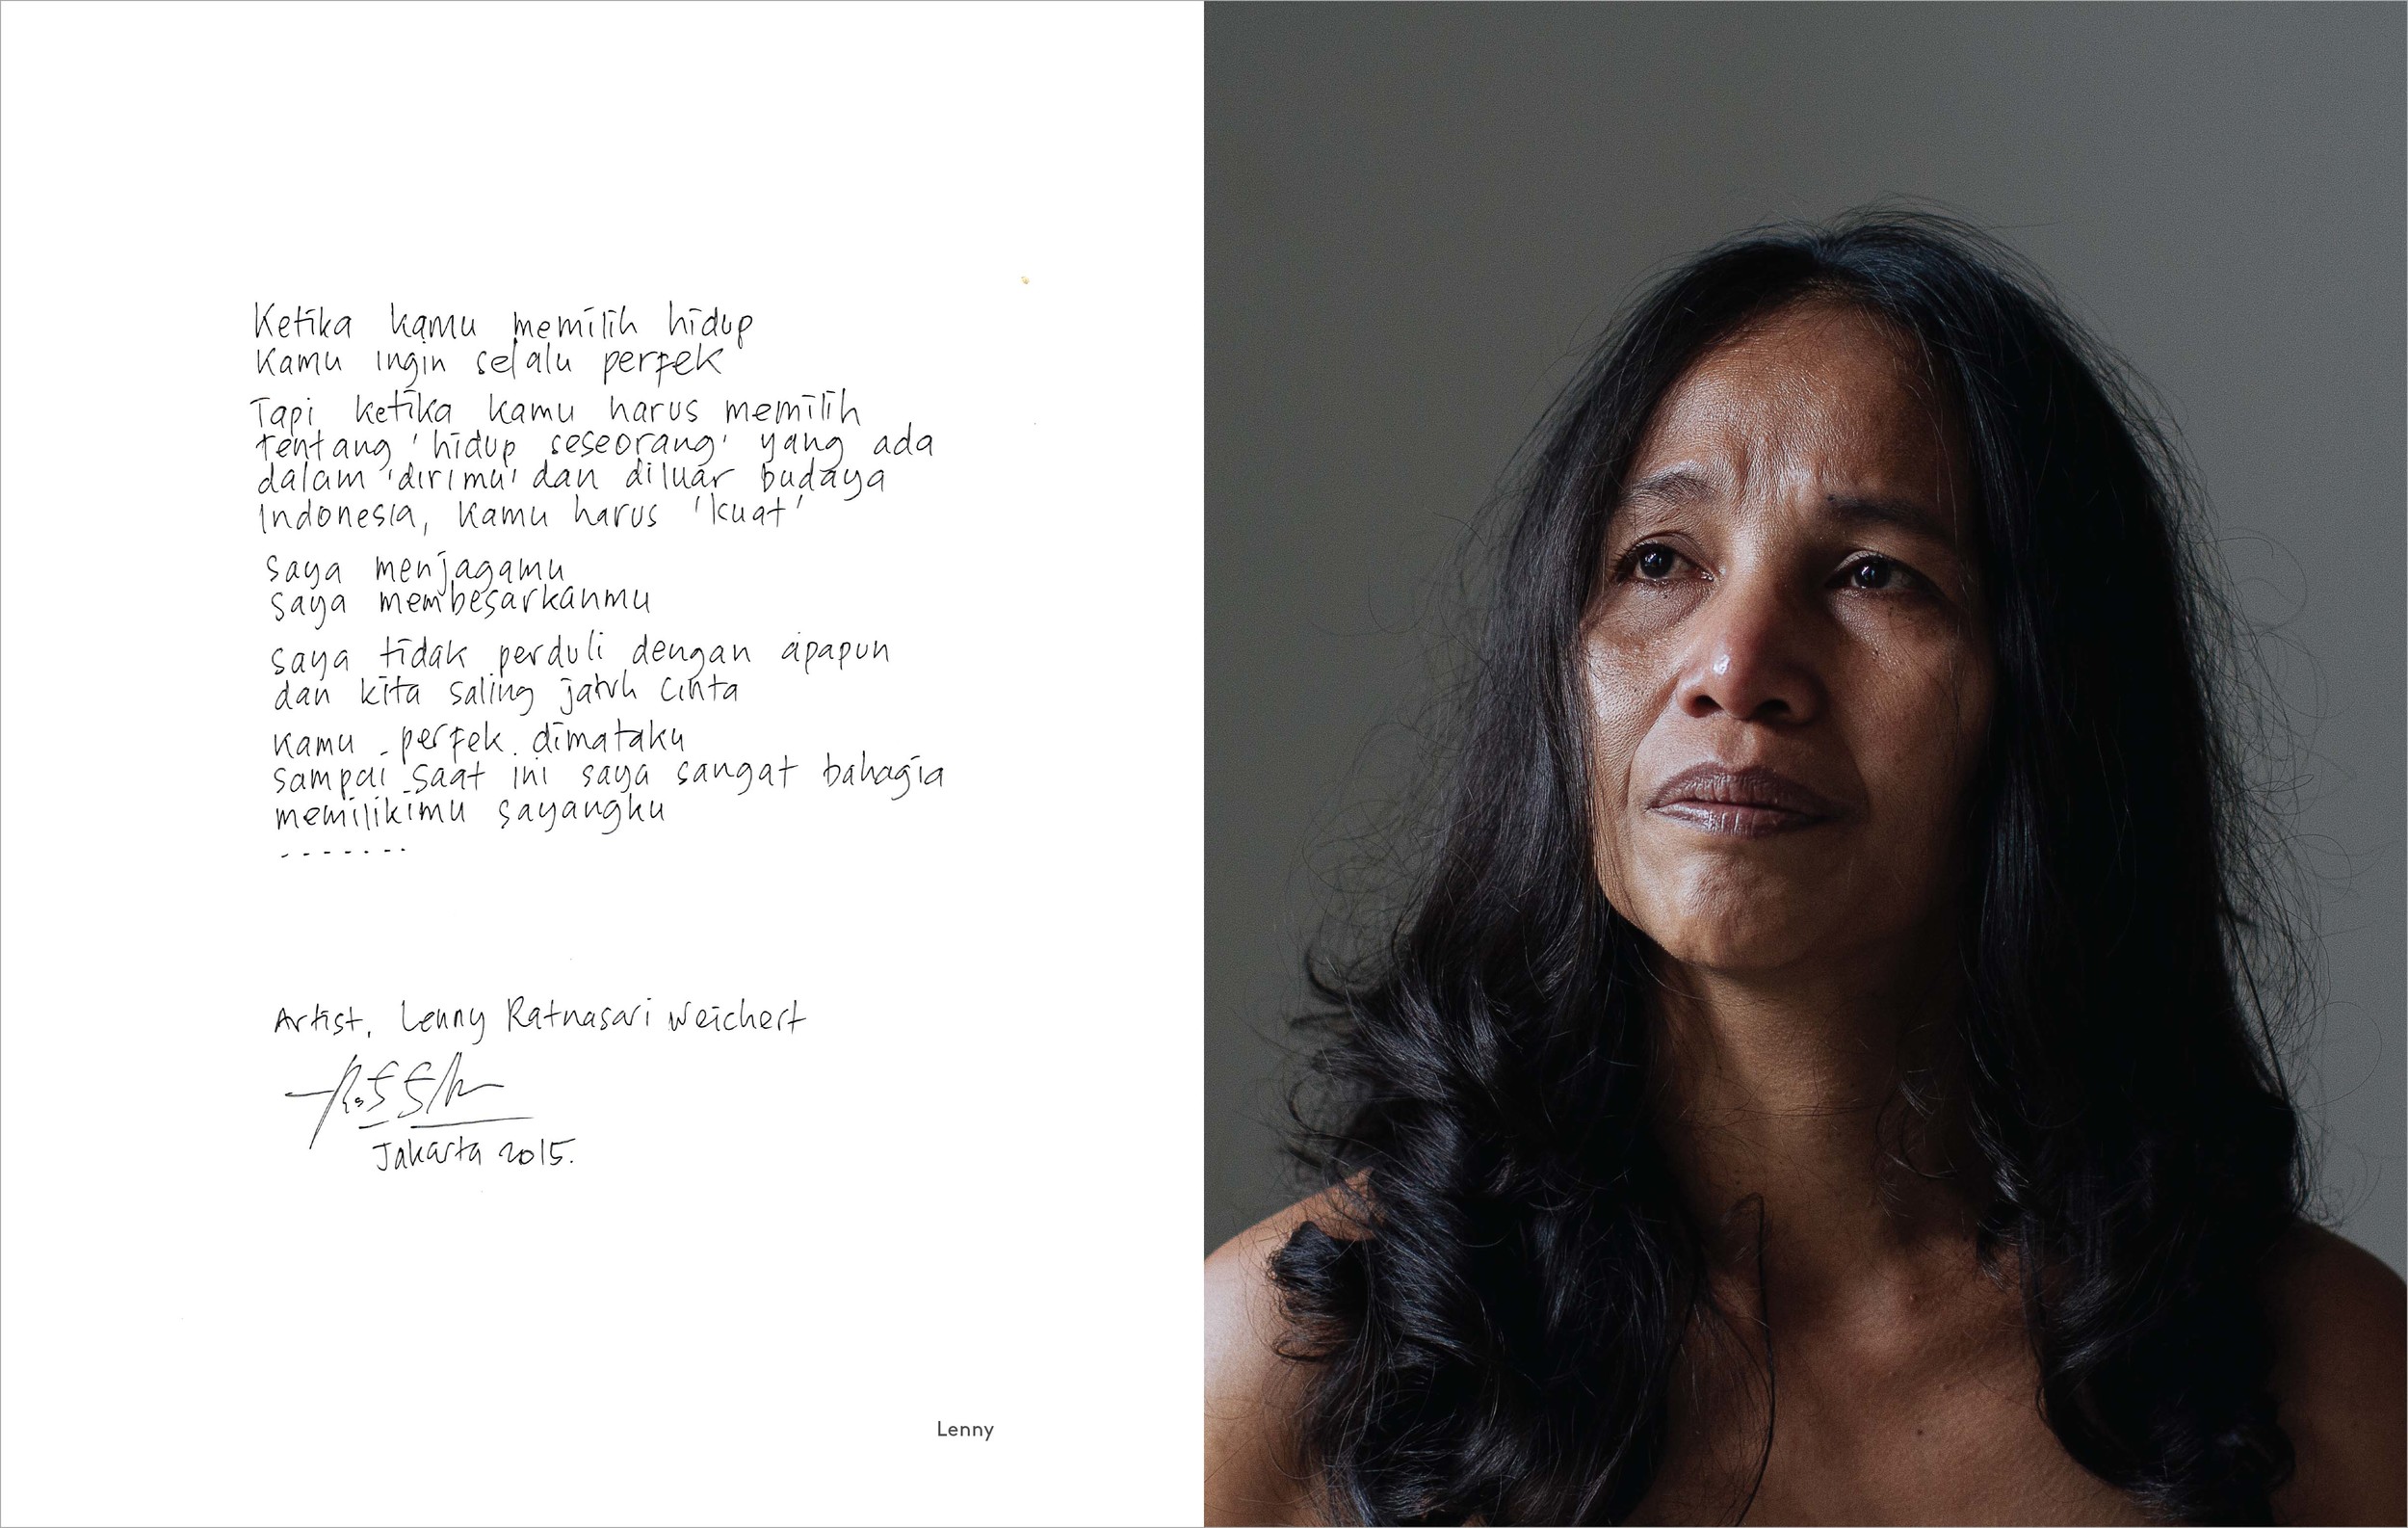 Ketika kamu memilih hidup
Kamu ingin selalu perfek
Tapi ketika kamu harus memilih
tentang 'hidup seseorang' yang ada
dalam 'dirimu' dan diluar budaya
Indonesia, kamu harus 'kuat'
saya menjagamu
saya membesarkanmu
saya tidak perduli dengan apapun
dan kita saling jatuh cinta
kamu perfek dimataku
sampai saat ini saya sangat bahagia
memilikimu sayangku
.......
Artist, Lenny Ratnasari Weichert
Jakarta 2015.
Lenny